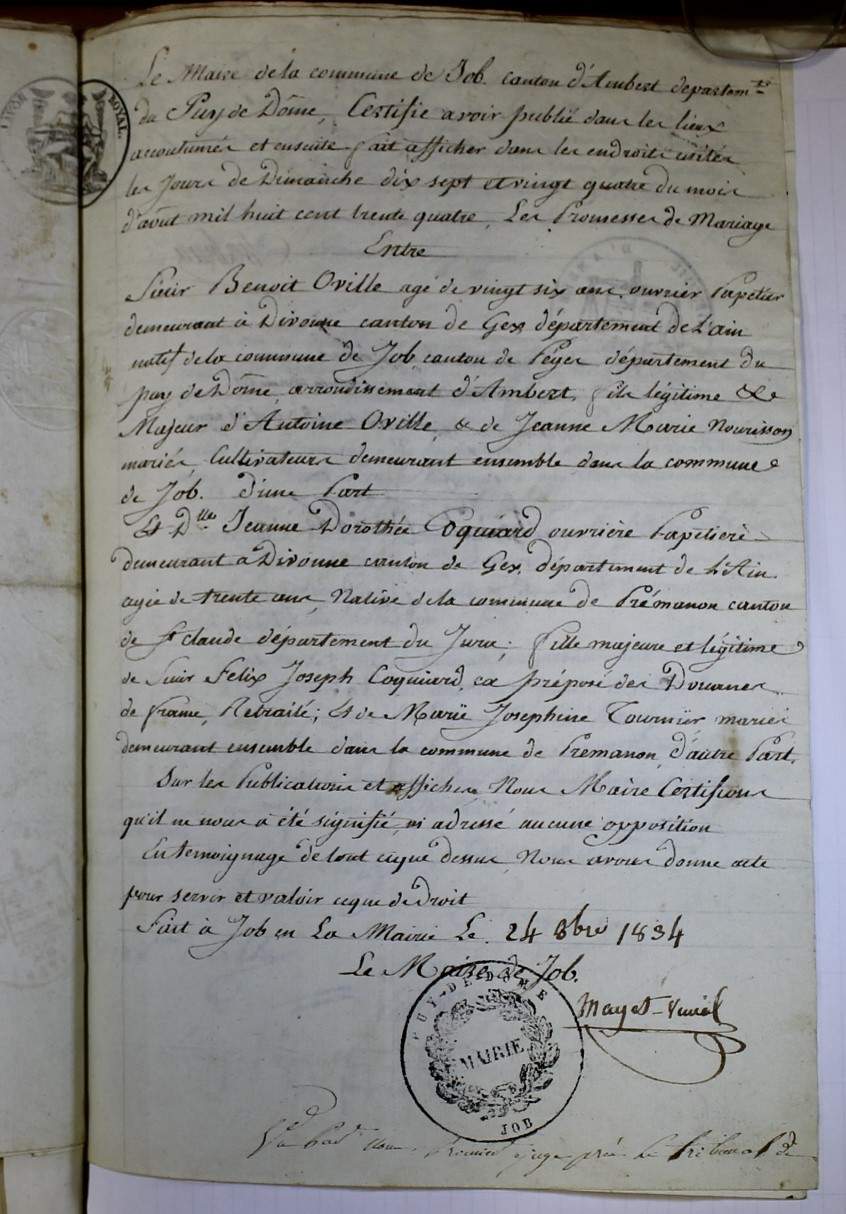 ROYAL.
Le Maire de la commune de Job. canton d'Ambert departem.ts
du Puy de Dôme, Certifie avoir publié dans les lieux
accoutumés et ensuite fait afficher dans les endroits usités
les Jours de Dimanche dix sept et vingt quatre du mois
d'avut mil huit cent trente quatre, Les Promesses de Mariage
Entre
Sieur Benoit Oville agé de vingt six ans, ouvrier Papetier
demeurant à Divonne canton de Gex département de L'ain
natif de la commune de Job, canton de département du
puy de Dôme, arrondissement d'Ambert, fils légitime &
Majeur d'Antoine Oville, & de Jeanne Marie Nourisson
mariés, Cultivateurs demeurant ensemble dans la commune
de Job. d'une Part
& D.lle Jeanne Dorothée Coquiard ouvrière Papetière
demeurant à Divonne canton de Gex, département de L'Ain
agée de trente ans, Native de la commune de Prémanon canton
de St claude département du Jura; fille majeure et légitime
de Sieur Felix Joseph Coquiard, ex préposé des Douanes
de france, Retraité; & de Marie Josephine Tournier mariés
demeurant ensemble dans la commune de Prémanon, d'autre Part.
Sur les Publications et affiches Nous Maire Certifions
qu'il ne nous a été signifié, ni adressé aucune opposition
En temoignage de tout ceque dessus, Nous avons donné acte
pour servir et valoir ceque de Droit
Fait à Job en La Mairie Le. 24 8bre 1834
Le Maire de Job.
PUY-DE-DÔME
MAIRIE
JOB